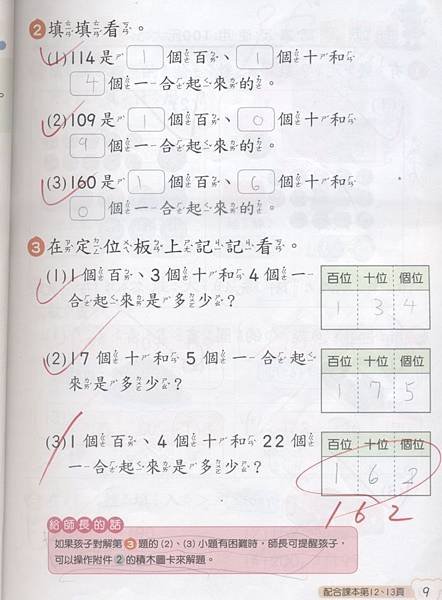 2 填填看。
(1) 114 是 1 個百、1 個十和
4 個一合起來的。
(2) 109 是 1 個百、0 個十和
9 個一合起來的。
(3) 160 是 1 個百、6 個十和
0 個一合起來的。
3 在定位板上記記看。
(1) 1 個百、3 個十和 4 個一
合起來是多少?
百位 十位 個位
1 3 4
(2) 17 個十和 5 個一合起
來是多少?
百位 十位 個位
1 7 5
(3) 1 個百、4 個十和 22 個
一合起來是多少?
百位 十位 個位
1 6 2
162
給師長的話
如果孩子對解第 3 題的 (2)、(3) 小題有困難時,師長可提醒孩子,
可以操作附件 2 的積木圖卡來解題。
配合課本第12、13頁 9